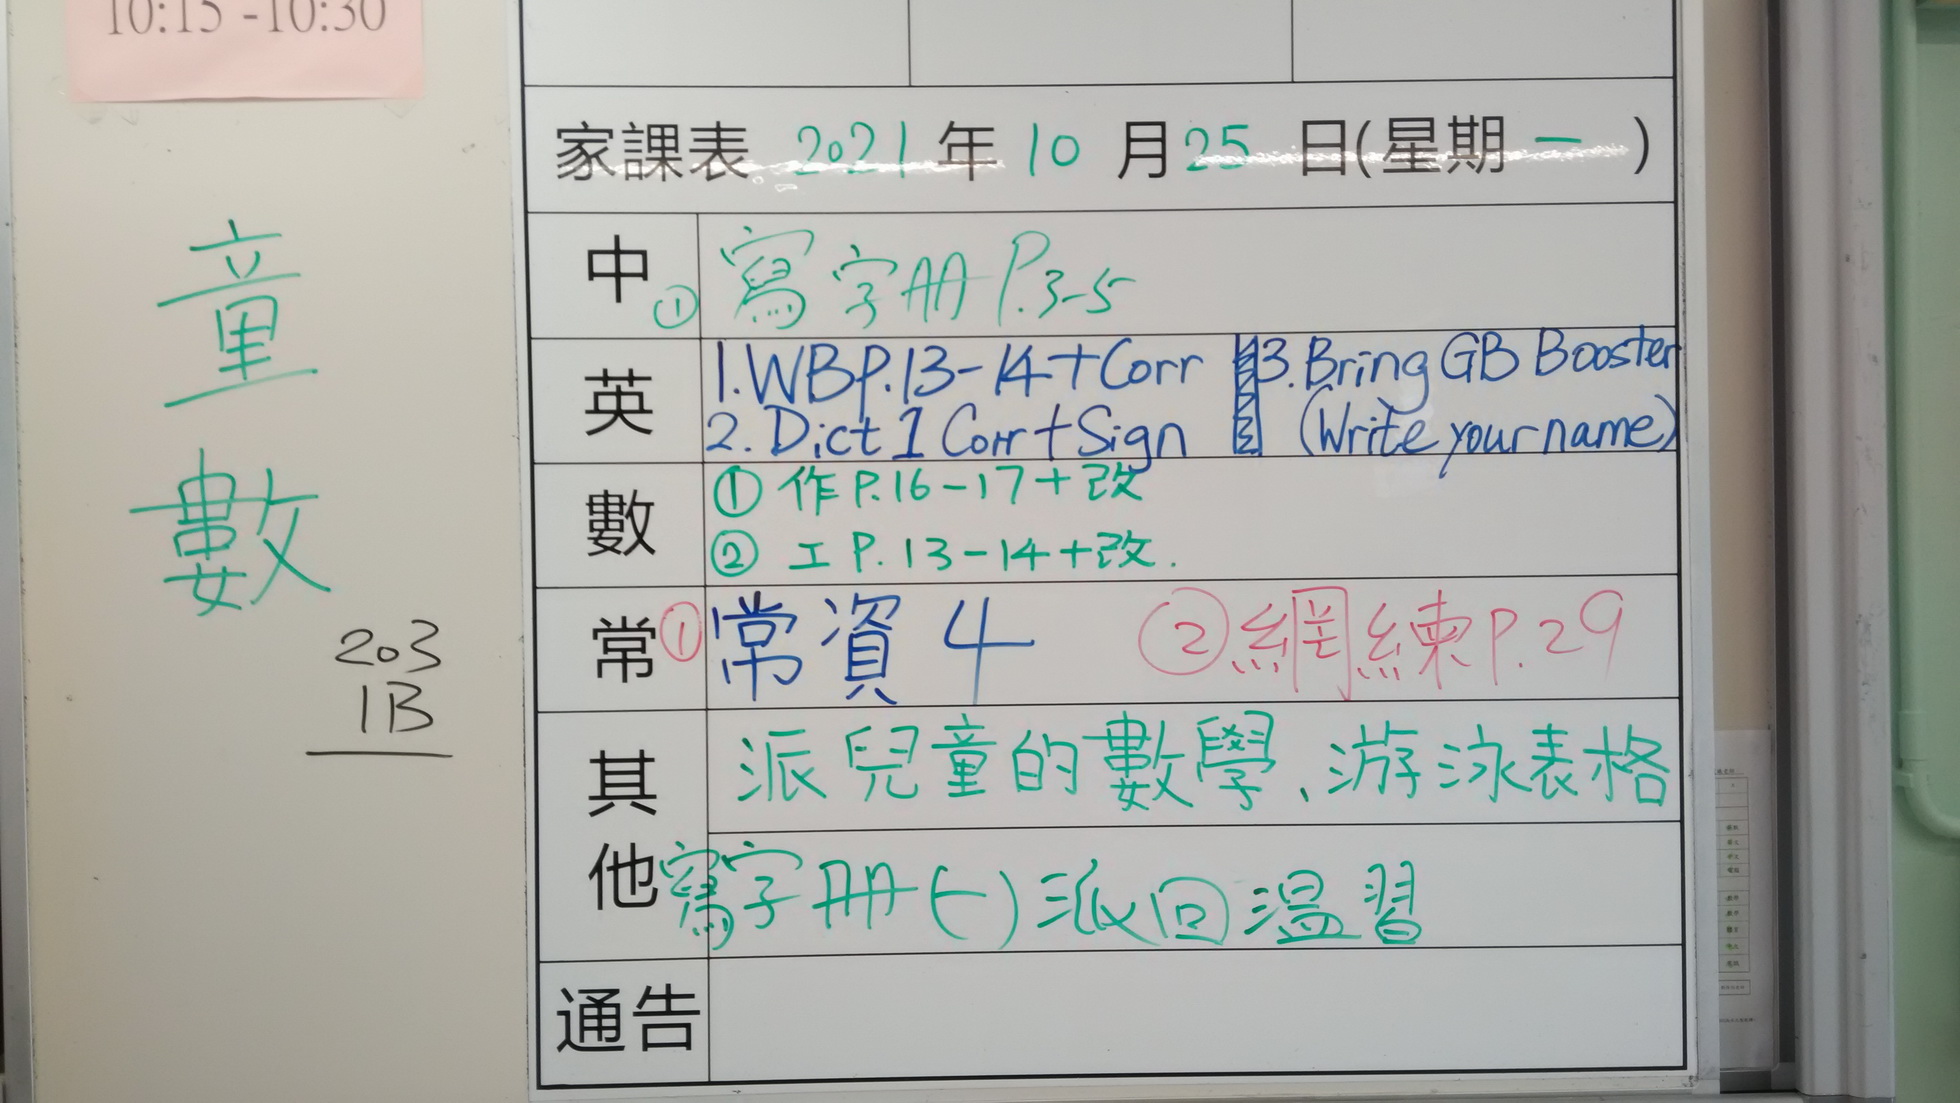 10:15 -10:30
家課表 2021 年 10 月 25 日(星期 一 )
童
數
203
1B
中 ① 寫字冊 P.3-5
英 1. WB P.13-14 + Corr 3. Bring GB Booster
2. Dict 1 Corr + Sign (Write your name)
數 ① 作 P.16-17 + 改
② 工 P. 13-14 + 改.
常 ① 常資 4 ② 網練 P.29
其他 派兒童的數學、游泳表格
寫字冊(一)派回溫習
通告